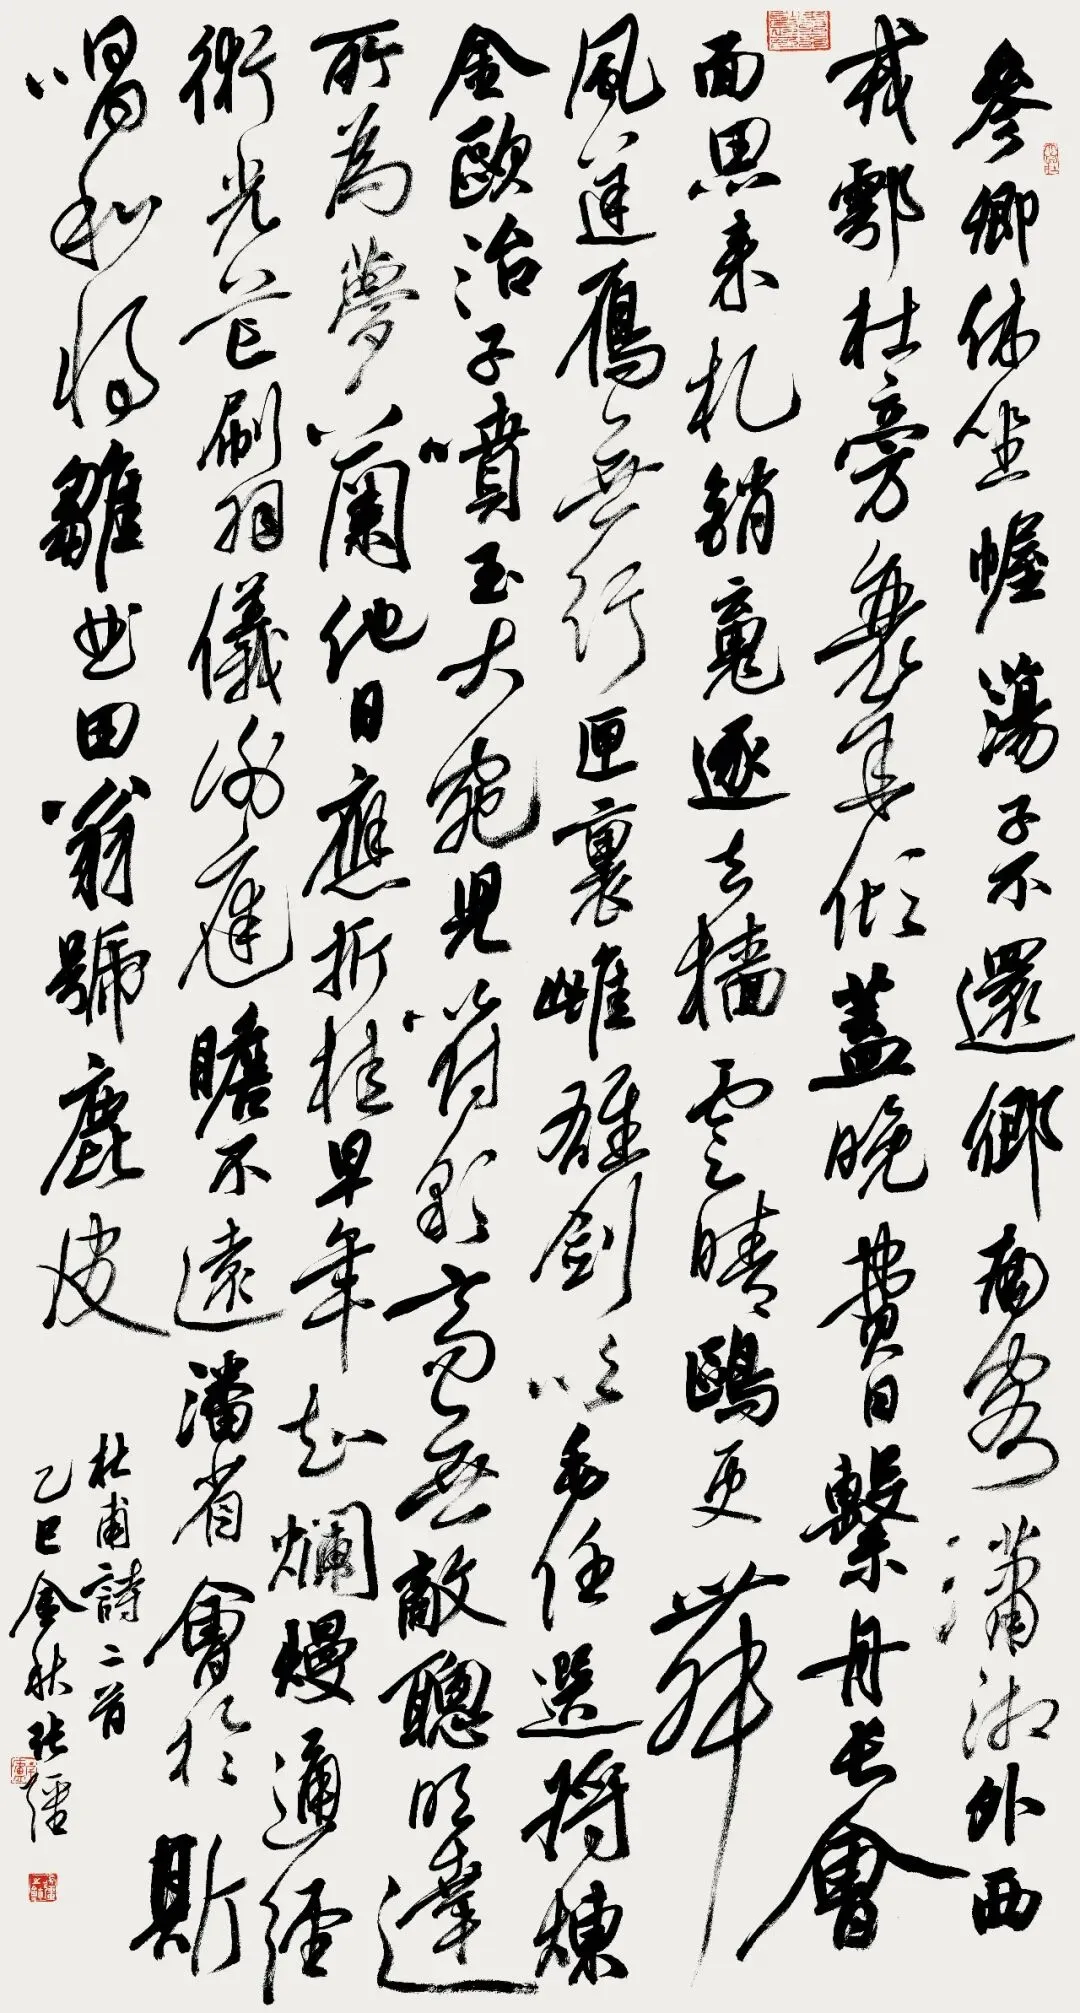 參卿休坐幄蕩子不還鄉南客瀟湘外西
戎鄠杜旁衰年傾蓋晚費日繫舟長會
面思来札銷魂逐去檣雲晴鷗更舞
風逆鴈無行匣裏雌雄劍吹毛任選將煉
金歐冶子噴玉大宛兒符彩高無敵聰明達
所為夢蘭他日應折桂早年知爛熳通經
術光芒刷羽儀謝庭瞻不遠潘省會於斯
唱和將雛曲田翁號鹿皮
杜甫詩二首
乙巳金秋張